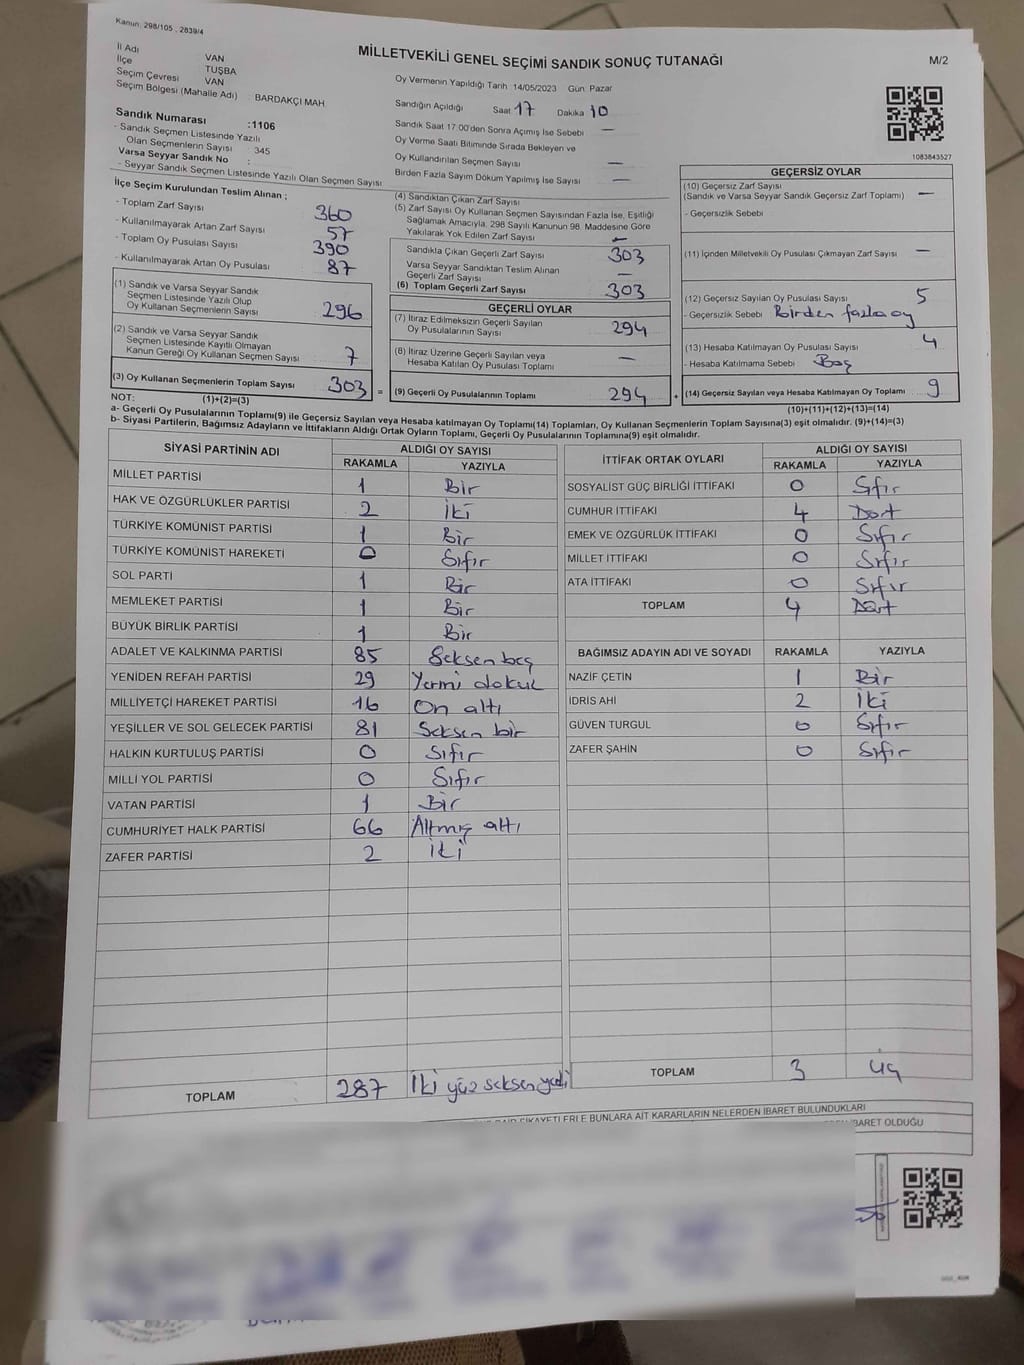 Kanun: 298/105 , 2839/4
MİLLETVEKİLİ GENEL SEÇİMİ SANDIK SONUÇ TUTANAĞI
M/2
İl Adı VAN
İlçe TUŞBA
Seçim Çevresi VAN
Seçim Bölgesi (Mahalle Adı) : BARDAKÇI MAH
Sandık Numarası :1106
- Sandık Seçmen Listesinde Yazılı
Olan Seçmenlerin Sayısı : 345
Varsa Seyyar Sandık No :
- Seyyar Sandık Seçmen Listesinde Yazılı Olan Seçmen Sayısı
Oy Vermenin Yapıldığı Tarih 14/05/2023 Gün: Pazar
Sandığın Açıldığı Saat 17 Dakika 10
Sandık Saat 17:00'den Sonra Açımış İse Sebebi —
Oy Verme Saati Bitiminde Sırada Bekleyen ve
Oy Kullandırılan Seçmen Sayısı —
Birden Fazla Sayım Döküm Yapılmış İse Sayısı —
1083843527
İlçe Seçim Kurulundan Teslim Alınan ;
- Toplam Zarf Sayısı 360
- Kullanılmayarak Artan Zarf Sayısı 57
- Toplam Oy Pusulası Sayısı 390
- Kullanılmayarak Artan Oy Pusulası 87
(1) Sandık ve Varsa Seyyar Sandık
Seçmen Listesinde Yazılı Olup
Oy Kullanan Seçmenlerin Sayısı 296
(2) Sandık ve Varsa Seyyar Sandık
Seçmen Listesinde Kayıtlı Olmayan
Kanun Gereği Oy Kullanan Seçmen Sayısı 7
(3) Oy Kullanan Seçmenlerin Toplam Sayısı 303 =
(4) Sandıktan Çıkan Zarf Sayısı
(5) Zarf Sayısı Oy Kullanan Seçmen Sayısından Fazla İse, Eşitliği
Sağlamak Amacıyla, 298 Sayılı Kanunun 98. Maddesine Göre
Yakılarak Yok Edilen Zarf Sayısı —
Sandıkta Çıkan Geçerli Zarf Sayısı 303
Varsa Seyyar Sandıktan Teslim Alınan
Geçerli Zarf Sayısı —
(6) Toplam Geçerli Zarf Sayısı 303
GEÇERLİ OYLAR
(7) İtiraz Edilmeksizin Geçerli Sayılan
Oy Pusulalarının Sayısı 294
(8) İtiraz Üzerine Geçerli Sayılan veya
Hesaba Katılan Oy Pusulası Toplamı —
(9) Geçerli Oy Pusulalarının Toplamı 294 +
GEÇERSİZ OYLAR
(10) Geçersiz Zarf Sayısı
(Sandık ve Varsa Seyyar Sandık Geçersiz Zarf Toplamı) —
- Geçersizlik Sebebi
(11) İçinden Milletvekili Oy Pusulası Çıkmayan Zarf Sayısı —
(12) Geçersiz Sayılan Oy Pusulası Sayısı 5
- Geçersizlik Sebebi Birden fazla oy
(13) Hesaba Katılmayan Oy Pusulası Sayısı 4
- Hesaba Katılmama Sebebi Boş
(14) Geçersiz Sayılan veya Hesaba Katılmayan Oy Toplamı 9
NOT: (1)+(2)=(3)
(10)+(11)+(12)+(13)=(14)
a- Geçerli Oy Pusulalarının Toplamı(9) ile Geçersiz Sayılan veya Hesaba katılmayan Oy Toplamı(14) Toplamları, Oy Kullanan Seçmenlerin Toplam Sayısına(3) eşit olmalıdır. (9)+(14)=(3)
b- Siyasi Partilerin, Bağımsız Adayların ve İttifakların Aldığı Ortak Oyların Toplamı, Geçerli Oy Pusulalarının Toplamına(9) eşit olmalıdır.
SİYASİ PARTİNİN ADI ALDIĞI OY SAYISI
RAKAMLA YAZIYLA
MİLLET PARTİSİ 1 Bir
HAK VE ÖZGÜRLÜKLER PARTİSİ 2 İki
TÜRKİYE KOMÜNİST PARTİSİ 1 Bir
TÜRKİYE KOMÜNİST HAREKETİ 0 Sıfır
SOL PARTİ 1 Bir
MEMLEKET PARTİSİ 1 Bir
BÜYÜK BİRLİK PARTİSİ 1 Bir
ADALET VE KALKINMA PARTİSİ 85 Seksen beş
YENİDEN REFAH PARTİSİ 29 Yirmi dokuz
MİLLİYETÇİ HAREKET PARTİSİ 16 On altı
YEŞİLLER VE SOL GELECEK PARTİSİ 81 Seksen bir
HALKIN KURTULUŞ PARTİSİ 0 Sıfır
MİLLİ YOL PARTİSİ 0 Sıfır
VATAN PARTİSİ 1 Bir
CUMHURİYET HALK PARTİSİ 66 Altmış altı
ZAFER PARTİSİ 2 İki
TOPLAM 287 İki yüz seksen yedi
İTTİFAK ORTAK OYLARI ALDIĞI OY SAYISI
RAKAMLA YAZIYLA
SOSYALİST GÜÇ BİRLİĞİ İTTİFAKI 0 Sıfır
CUMHUR İTTİFAKI 4 Dört
EMEK VE ÖZGÜRLÜK İTTİFAKI 0 Sıfır
MİLLET İTTİFAKI 0 Sıfır
ATA İTTİFAKI 0 Sıfır
TOPLAM 4 Dört
BAĞIMSIZ ADAYIN ADI VE SOYADI RAKAMLA YAZIYLA
NAZİF ÇETİN 1 Bir
İDRİS AHİ 2 İki
GÜVEN TURGUL 0 Sıfır
ZAFER ŞAHİN 0 Sıfır
TOPLAM 3 Üç
ŞİKAYETLERLE BUNLARA AİT KARARLARIN NELERDEN İBARET BULUNDUKLARI
İBARET OLDUĞU